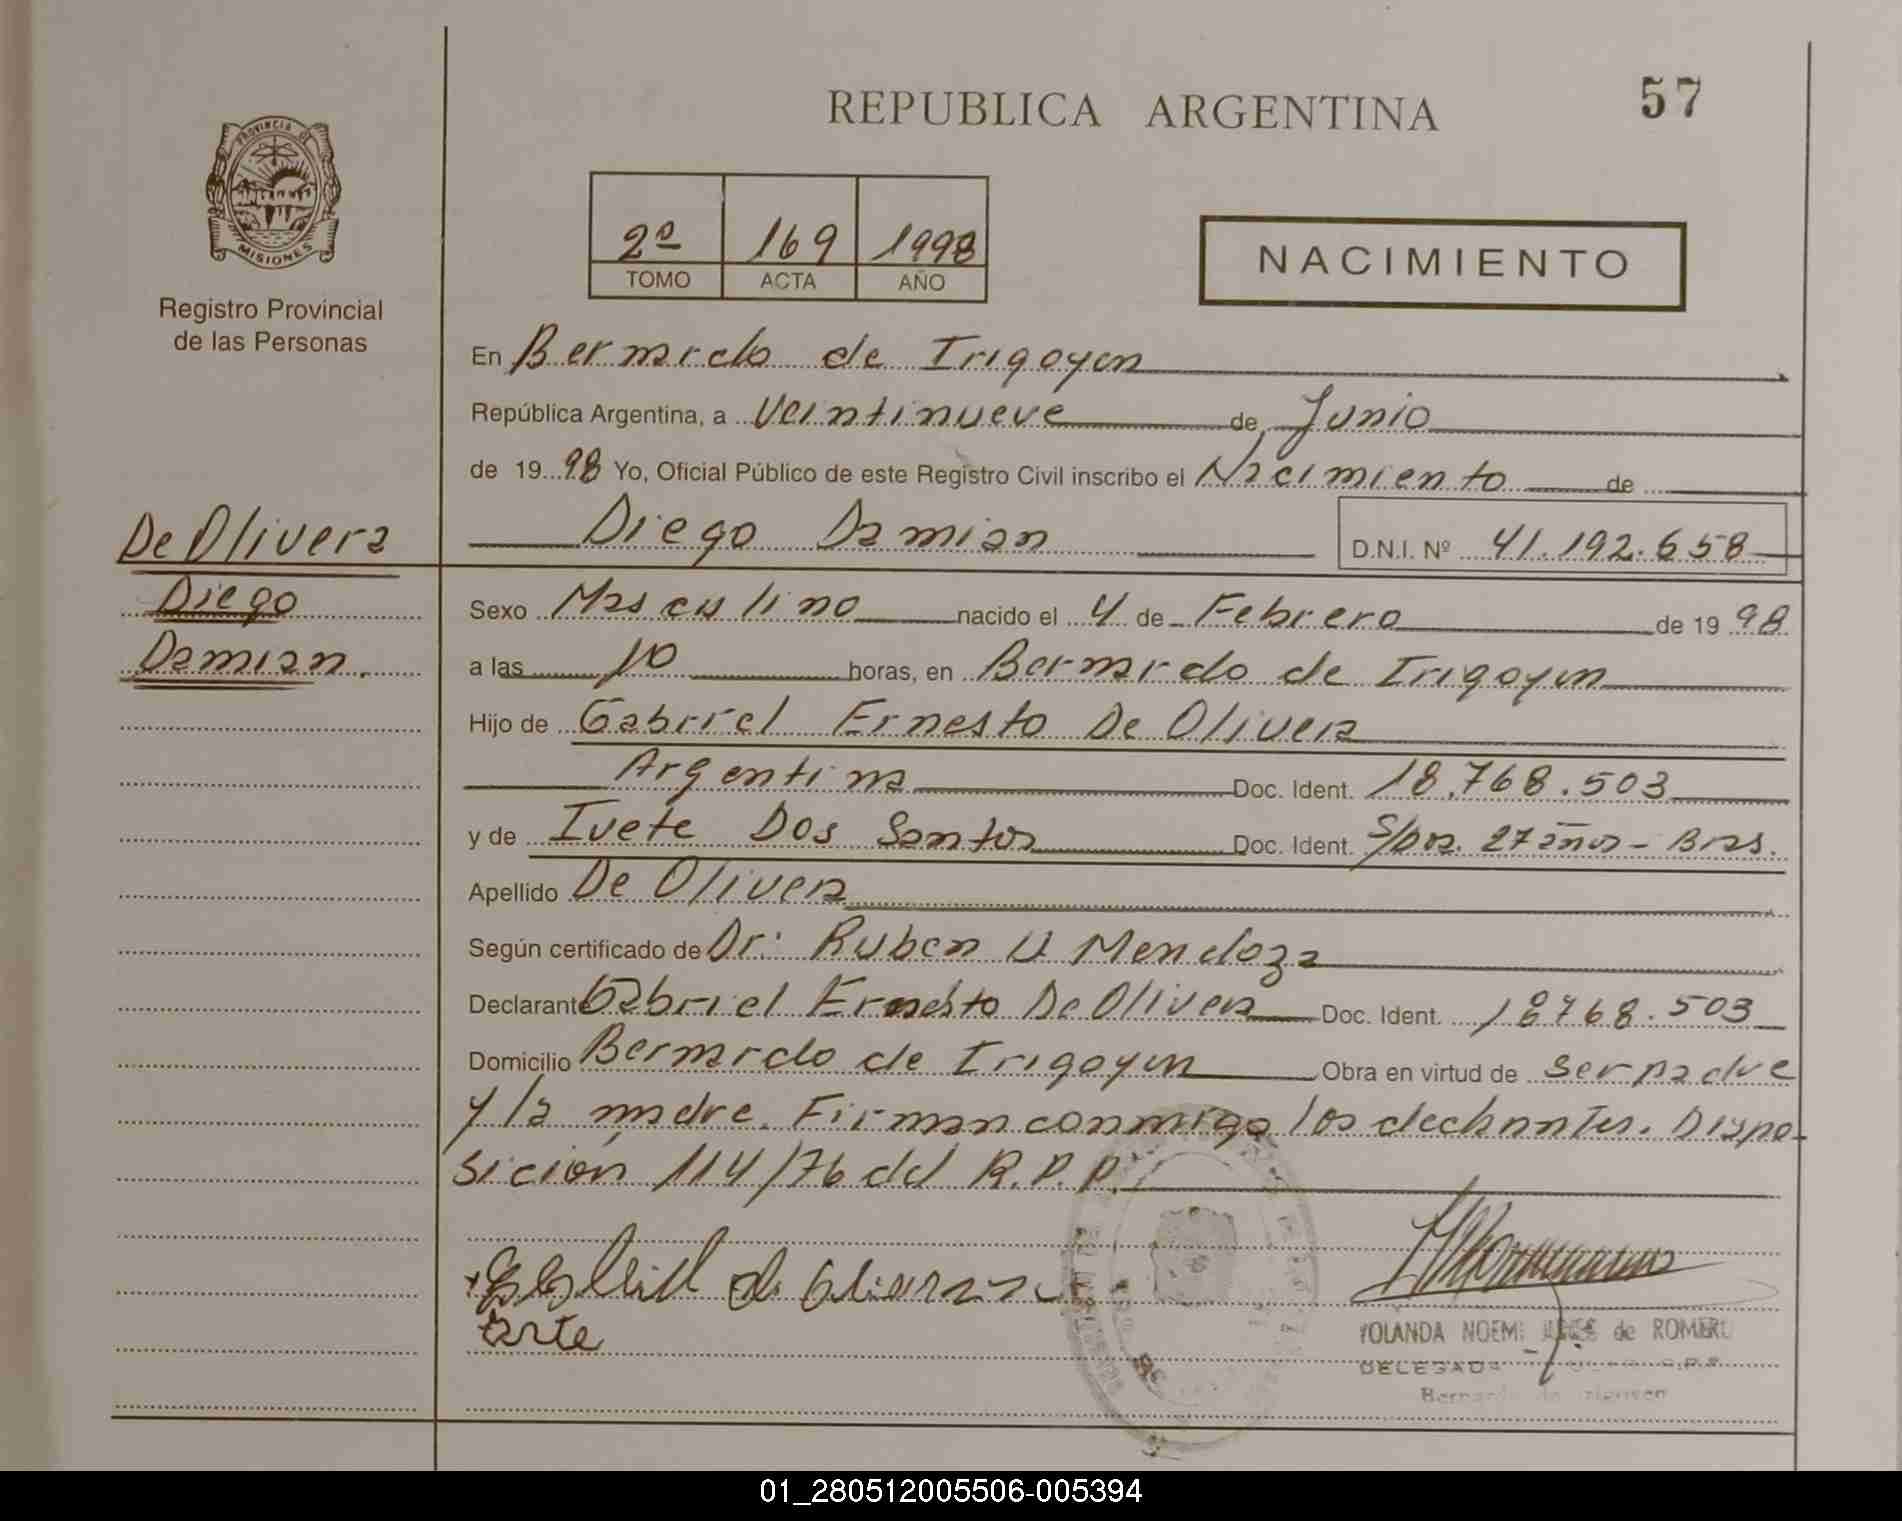 REPUBLICA ARGENTINA
57
PROVINCIA DE
MISIONES
Registro Provincial
de las Personas
2º 169 1998
TOMO ACTA AÑO
NACIMIENTO
En Bernardo de Irigoyen
República Argentina, a Veintinueve de Junio
de 1998 Yo, Oficial Público de este Registro Civil inscribo el Nacimiento de
De Olivera
Diego Damian D.N.I. Nº 41.192.658
Diego
Damian.
Sexo Masculino nacido el 4 de Febrero de 1998
a las 10 horas, en Bernardo de Irigoyen
Hijo de Gabriel Ernesto De Olivera
Argentina Doc. Ident. 18.768.503
y de Ivete Dos Santos Doc. Ident. S/Doc. 27 años - Bras.
Apellido De Olivera
Según certificado de Dr: Ruben U Mendoza
Declarante Gabriel Ernesto De Olivera Doc. Ident. 18768.503
Domicilio Bernardo de Irigoyen Obra en virtud de ser padre
y la madre. Firman conmigo los declarantes. Dispo-
sición 114/76 del R.P.P.
YOLANDA NOEMI de ROMERO
DELEGADA
Bernardo de Irigoyen
01_280512005506-005394